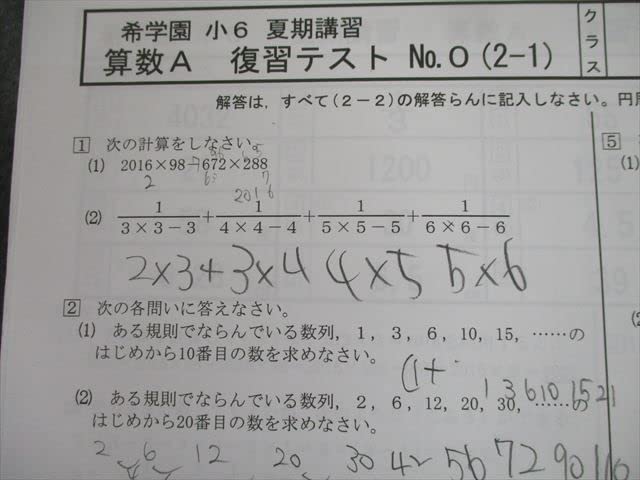 希学園 小6 夏期講習
算数A 復習テスト No.0(2-1)
クラス
解答は,すべて(2-2)の解答らんに記入しなさい。円周
1 次の計算をしなさい。
5
(1) 2016×98-672×288
2016
(2) 1/(3×3-3)+1/(4×4-4)+1/(5×5-5)+1/(6×6-6)
2×3+3×4 4×5 5×6
2 次の各問いに答えなさい。
(1) ある規則でならんでいる数列,1,3,6,10,15,……の
はじめから10番目の数を求めなさい。
(1+
1 3 6 10 15 21
(2) ある規則でならんでいる数列,2,6,12,20,30,……の
はじめから20番目の数を求めなさい。
2 6 12 20 30 42 56 72 90 110